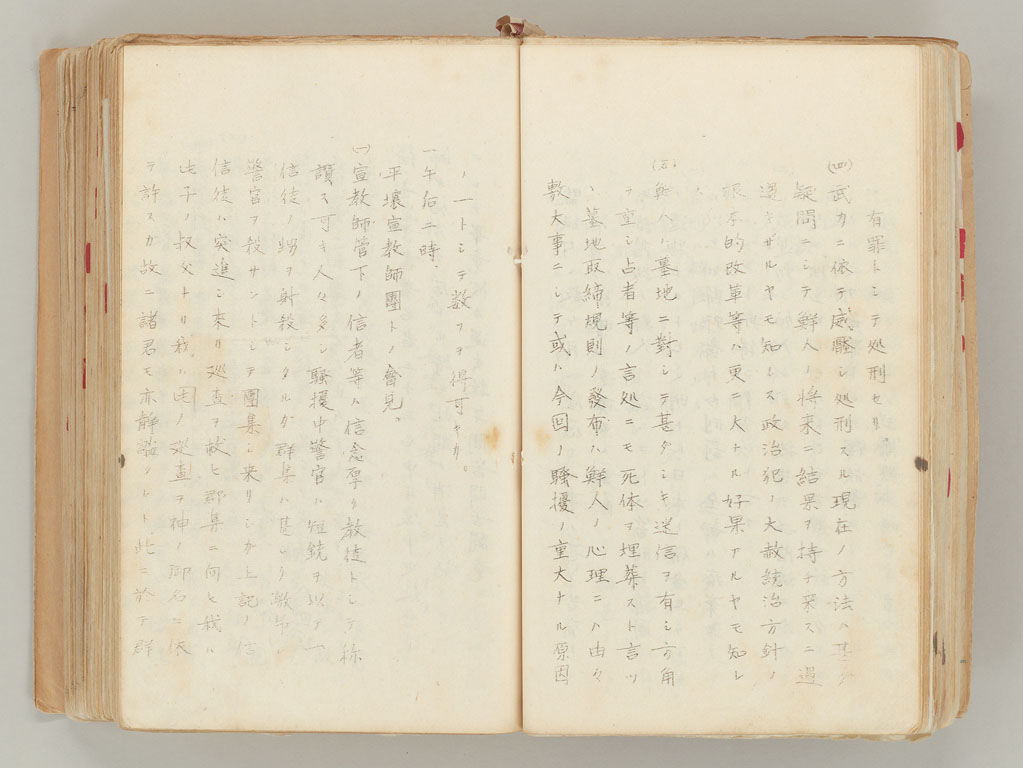 有罪トシテ処刑セリ
(四)武力ニ依テ威壓シ処刑スル現在ノ方法ハ甚ダ
疑問ニシテ鮮人ノ将来ニ結果ヲ持チ来スニ過
過キザルヤモ知レス政治犯ノ大赦統治方針ノ
根本的改革等ハ更ニ大ナル好果ナルヤモ知レ
(五)鮮人ハ墓地ニ對シテ甚ダシキ迷信ヲ有シ方角
ヲ重シ占者等ノ言処ニモ死体ヲ埋葬スト言ツ
、墓地取締規則ノ發布ハ鮮人ノ心理ニハ由々
敷大事ニシテ或ハ今回ノ騒擾ノ重大ナル原因
ノ一トシテ数ヲ得可キカ。
一午后二時、
平壌宣教師團トノ會見。
(一)宣教師管下ノ信者等ハ信念厚ク教徒トシテ称
讃ス可キ人々多シ騒擾中警官ハ短銃ヲ以テ一
信徒ノ甥ヲ射殺シタルガ群集ハ甚シク激昂シ
警官ヲ殺サントシテ團集シ来リシガ上記ノ信
信徒ハ突進シ来リ巡査ヲ救ヒ群集ニ向ヒ我ハ
此子ノ叔父ナリ我ハ此ノ巡査ヲ神ノ御名ニ依
テ許スガ故ニ諸君モ亦解散セラレト此ニ於テ群